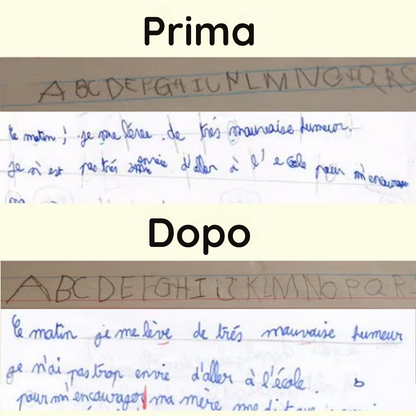 Prima
A B C D E F G H I U N L M N O P Q R S
le matin ; je me lève de très mauvaise humeur.
je n'est pas très envie d'aller à l'école pour m'encourage
Dopo
A B C D E F G H I J K L M N O P Q R
Ce matin je me lève de très mauvaise humeur
je n'ai pas trop envie d'aller à l'école.
pour m'encourager ma mère me dit